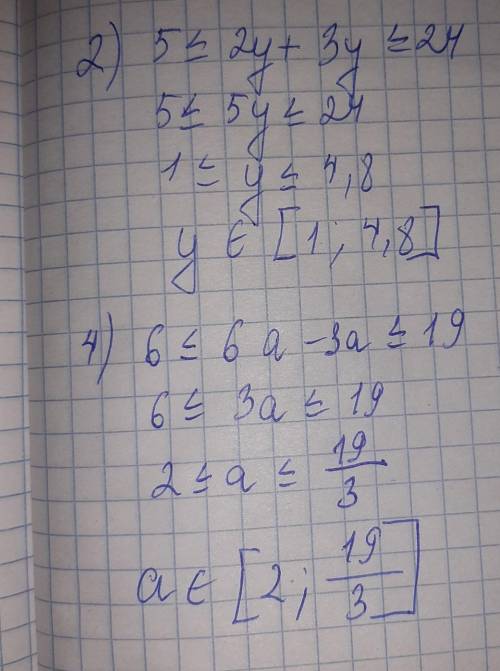 2) 5 ≤ 2y + 3y ≤ 24
5 ≤ 5y ≤ 24
1 ≤ y ≤ 4,8
y ∈ [1; 4,8]
4) 6 ≤ 6a - 3a ≤ 19
6 ≤ 3a ≤ 19
2 ≤ a ≤ 19/3
a ∈ [2; 19/3]